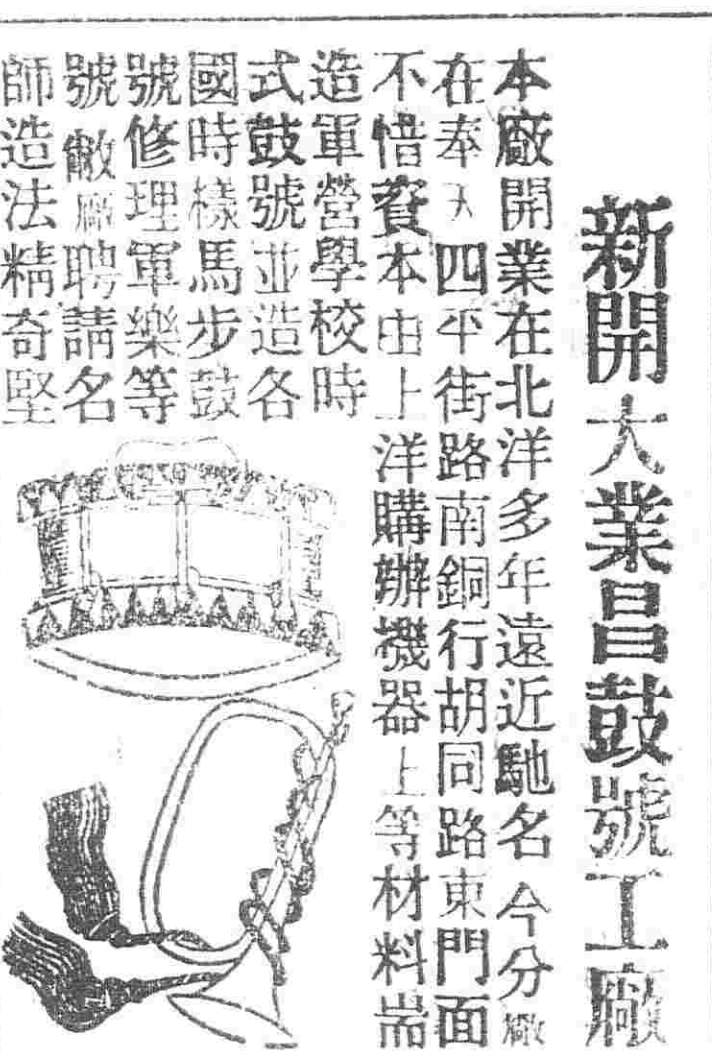 新開大業昌鼓號工廠
本廠開業在北洋多年遠近馳名今分廠
在奉天四平街路南銅行胡同路東門面
不惜資本由上洋購辦機器上等材料耑
造軍營學校時
式鼓號並造各
國時樣馬步鼓
號修理軍樂等
號敝廠聘請名
師造法精奇堅